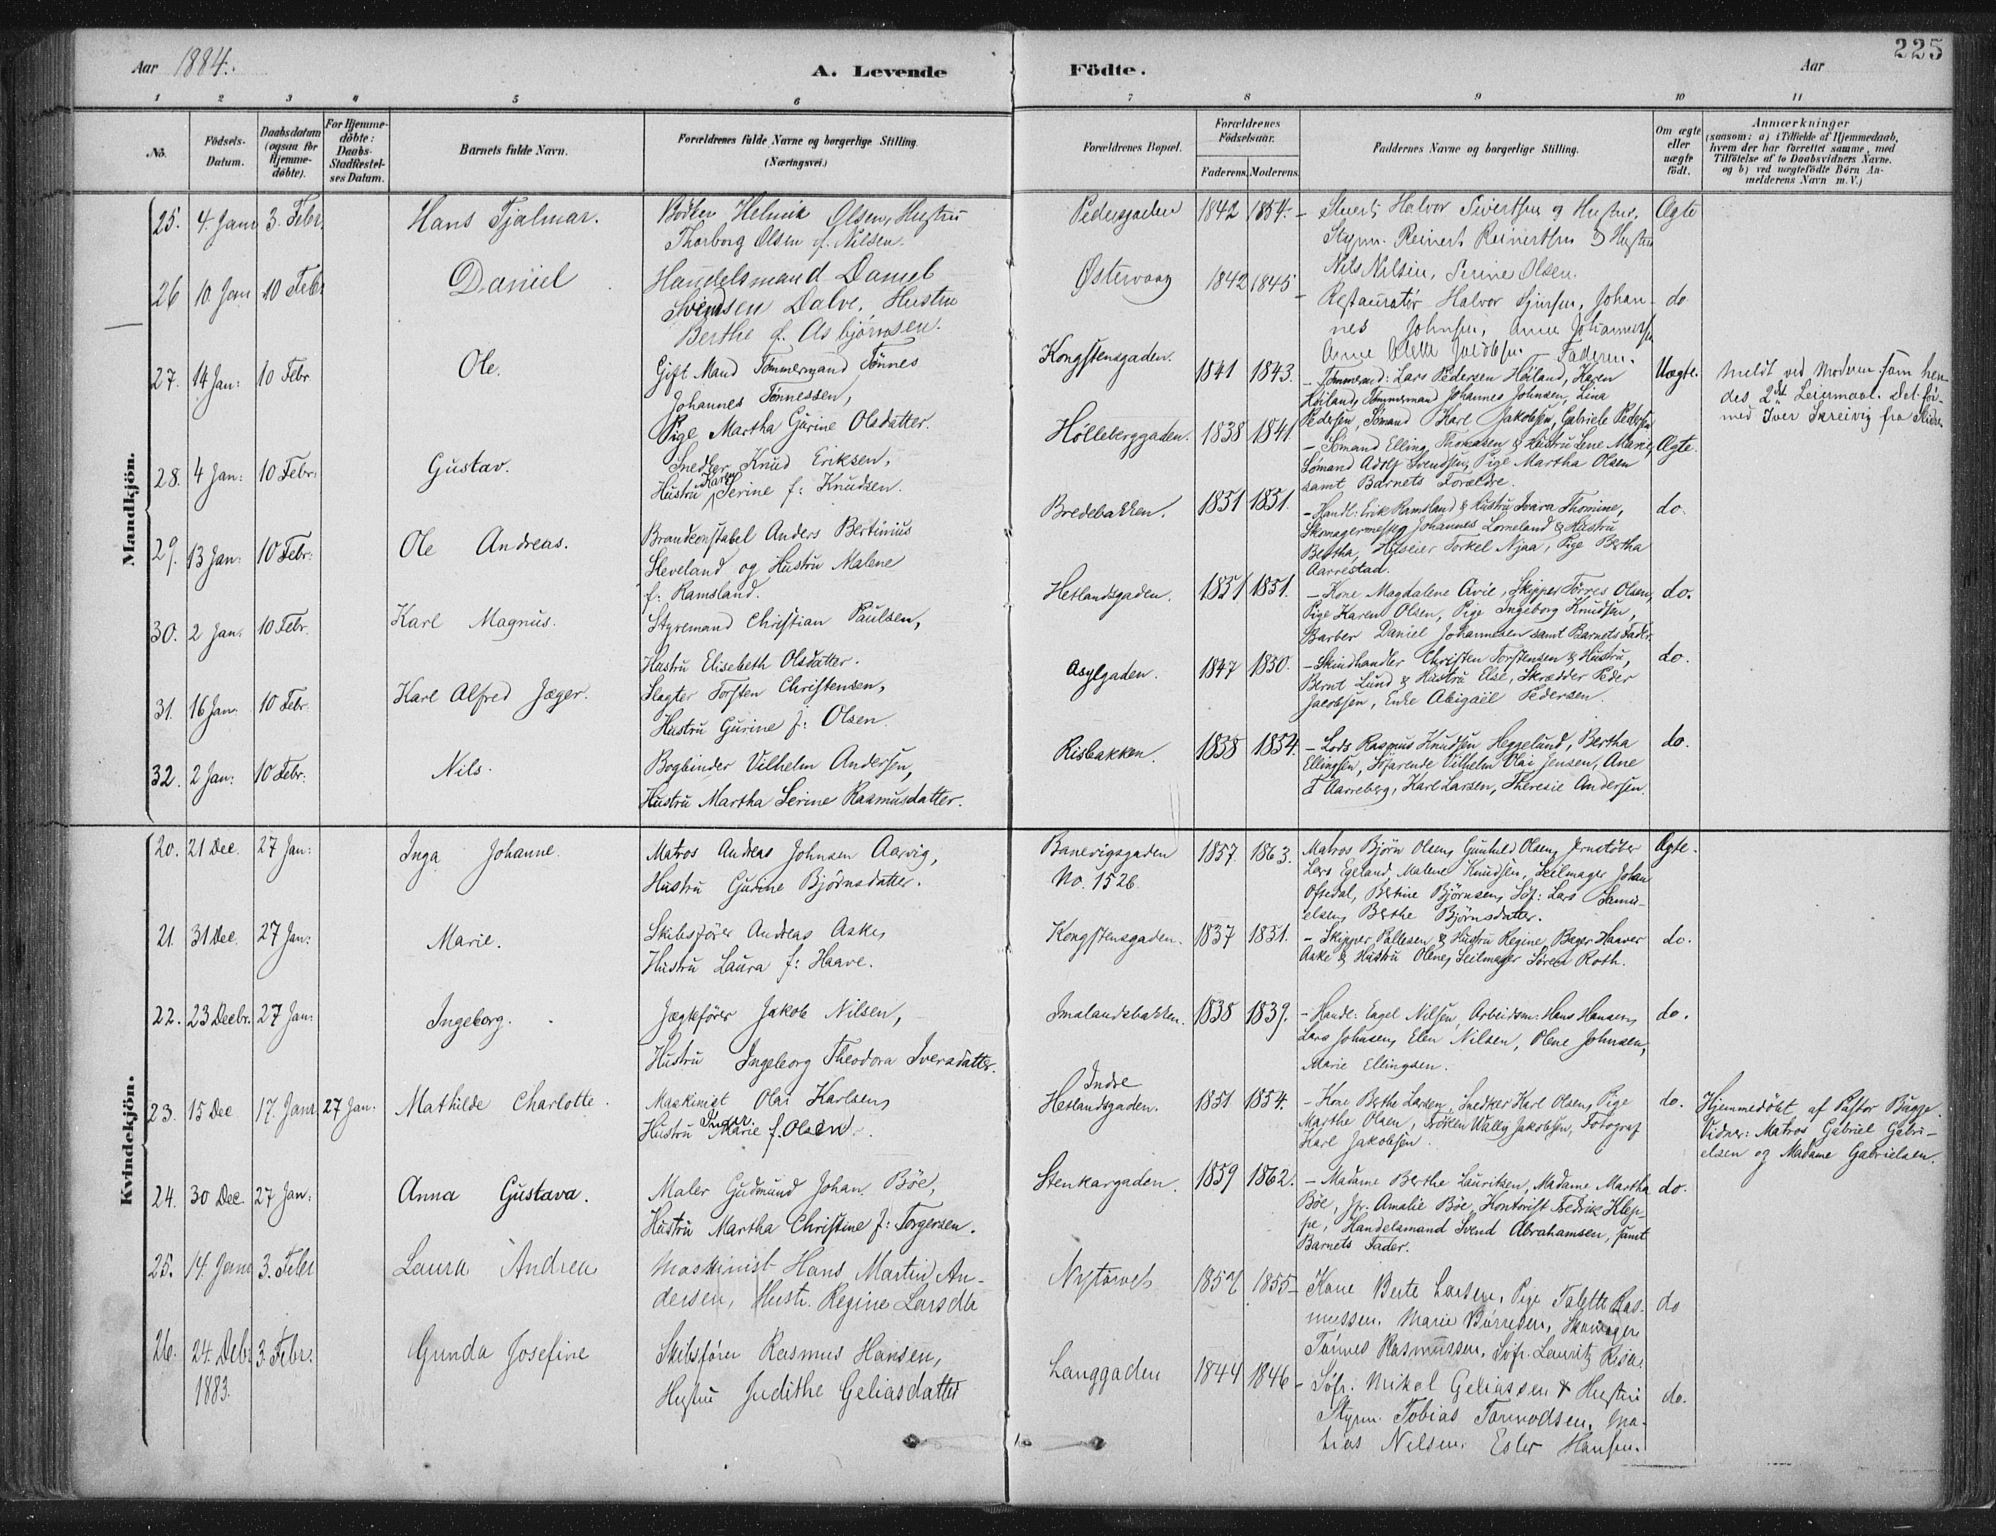 225
Aar 1884.
A. Levende Födte.
Aar
1 2 3 4 5 6 7 8 9 10 11
No.
Födsels-Datum.
Daabsdatum (ogsaa for Hjemme-döbte).
For Hjemme-döbte: Daabs-Stadfestel-ses Datum.
Barnets fulde Navn.
Forældrenes fulde Navne og borgerlige Stilling. (Næringsvei.)
Forældrenes Bopæl.
Forældrenes Födselsaar.
Faderens. Moderens.
Faddernes Navne og borgerlige Stilling.
Om ægte eller uægte födt.
Anmærkninger
(saasom: a) i Tilfælde af Hjemmedaab, hvem der har forrettet samme, med Tilföielse af to Daabsvidners Navne. og b) ved uægtefödte Börn An-melderens Navn m. V.)
Mandkjön.
25. 4. Janr 3. Febr. Hans Fjalmar.
Bøtker Helmik Olsen, Hustru
Thorborg Olsen f. Nilsen.
Pedersgaden 1842 1854.
Halvor Sivertsen og Hustru,
Styrm. Reinert Reinertsen & Hustru
Nils Nilsen, Serine Olsen.
Ægte
26 10. Jan 10 Febr Daniel
Handelsmand Daniel
Svendsen Dalve, Hustru
Berthe f. Asbjørnsen.
Østervaag 1842 1845
Restauratør Halvor Sjursen, Johan-
nes Johnsen, Anne Johannessen
Anne Jacobsen Faderen.
do
27. 14 Jan: 10 Febr Ole.
Gift Mand Tömmermand Tönnes
Johannes Tönnessen,
Pige Martha Gurine Olsdatter.
Kongstensgaden. 1841 1843.
- Tömmermd: Lars Pedersen Höiland, Karen
Höiland, Tömmermand Johannes Johnsen, Lina
Pedersen, Sömand Karl Jakobsen, Gabriele Pedersen
Uægte.
Meldt ved Moderen som hen-
des 2det Leiermaal. det för-
med Iver Skreivig fra
28. 4 Jan: 10 Febr: Gustav.
Snedker Knud Eriksen,
Hustru Karen Serine f: Knudsen.
Hölleberggaden. 1838 1841
- Sömand Elling Thomsen & Hustru Lene Marie,
Sömand Adolf Svendsen, Pige Martha Olsen
samt Barnets Forældre.
Ægte.
29. 13 Jan: 10 Febr: Ole Andreas.
Brandkonstabel Anders Bertinius
Sleveland og Hustru Malene
f: Ramsland.
Bredebakken. 1851 1851.
- Handl: Erik Ramsland & Hustru Svara Thomine,
Skomagermester Johannes Lomeland & Hustru
Bertha, Huseier Torkel Njaa, Pige Bertha
Aarrestad.
do.
30. 2 Jan: 10 Febr. Karl Magnus.
Styremand Christian Paulsen,
Hustru Elisebeth Olsdatter.
Hetlandsgaden. 1851 1851.
- Kone Magdalene Avie, Skipper Törres Olsen,
Pige Karen Olsen, Pige Ingeborg Knudsen,
Barber Daniel Johannesen samt Barnets Fader.
do.
31. 16 Jan. 10 Febr. Karl Alfred Jæger.
Slagter Torsten Christensen,
Hustru Gurine f: Olsen.
Asylgaden. 1847 1850.
- Skindhandler Christen Torstensen & Hustru,
Bernt Lund & Hustru Else, Skrædder Peder
Jacobsen, Enke Abigaël Pedersen.
do.
32. 2 Jan: 10 Febr: Nils.
Bogbinder Vilhelm Andersen,
Hustru Martha Serine Rasmusdatter.
Risbakken. 1858 1854.
- Lods Rasmus Knudsen Heggelund, Bertha
Ellingsen, Söfarende Vilhelm Olai Jensen, Ane
T Aarreberg, Karl Larsen, Theresie Andersen.
do.
Kvindekjön.
20. 21 Dec. 27 Jan: Inga Johanne.
Matros Andreas Johnsen Aarvig,
Hustru Gurine Bjørnsdatter.
Banevigsgaden
No. 1526.
1857. 1863.
Matros Bjørn Olsen, Gunhild Olsen, Jernstøber
Lars Egeland, Malene Knudsen, Seilmager Johan
Oftedal, Bertine Bjørnsen, Söf: Lars Samu-
elsen, Berthe Bjørnsdatter.
Ægte.
21. 31 Dec. 27 Jan: Marie.
Skibsförer Andreas Aske,
Hustru Laura f: Haave.
Kongstensgaden. 1837 1851.
- Skipper Pallesen & Hustru Regine, Bager Haaver
Aske & Hustru Olene, Seilmager Sören Roth.
do.
22. 23 Decbr. 27 Jan: Ingeborg.
Jægtefører Jakob Nilsen,
Hustru Ingeborg Theodora Iversdatter.
Smalandsbakken. 1838 1839.
- Handl: Engel Nilsen, Arbeidsm: Hans Hansen,
Lars Johnsen, Elen Nilsen, Olene Johnsen,
Marie Ellingsen.
do.
23. 15 Dec 17. Janr 27 Jan. Mathilde Charlotte.
Maskinist Olai Karlsen,
Hustru Inger Marie f. Olsen.
Indre
Hetlandsgaden. 1851 1854.
- Kone Berthe Larsen, Snedker Karl Olsen, Pige
Marthe Olsen, Fröken Wally Jakobsen, Fotograf
Karl Jakobsen.
do.
Hjemmedöbt af Pastor Bugge.
Vidner: Matros Gabriel Gabri-
elsen og Madame Gabrielsen.
24. 30 Dec. 27 Jan: Anna Gustava.
Maler Gudmund Johan Böe,
Hustru Martha Christine f: Torgersen.
Stenkargaden. 1859 1862.
- Madame Berthe Lauritsen, Madame Martha
Böe, Jfr. Amalie Böe, Kontorist Fredrik Klep-
pe, Handelsmand Svend Abrahamsen, samt
Barnets Fader.
do.
25. 14. Janr 3. Febr Laura Andrea
Maskinist Hans Martin An-
dersen, Hustr. Regine Larsdtr
Nytorvet 1857 1855
- Kone Berte Larsen, Pige Talette Ras-
mussen. Marie Börresen, Skomager
Tönnes Rasmussen, Söfr. Lauritz Risa.
do
26. 24. Debr 1883. 3. Febr. Gunda Josefine
Skibsfører Rasmus Hansen,
Hustru Judithe Geliasdatter
Langgaden 1844 1846
- Söfr. Mikal Geliassen & Hustru
Styrm. Tobias Tormodsen, Ma-
tias Nilsen. Ester Hansen.
do.